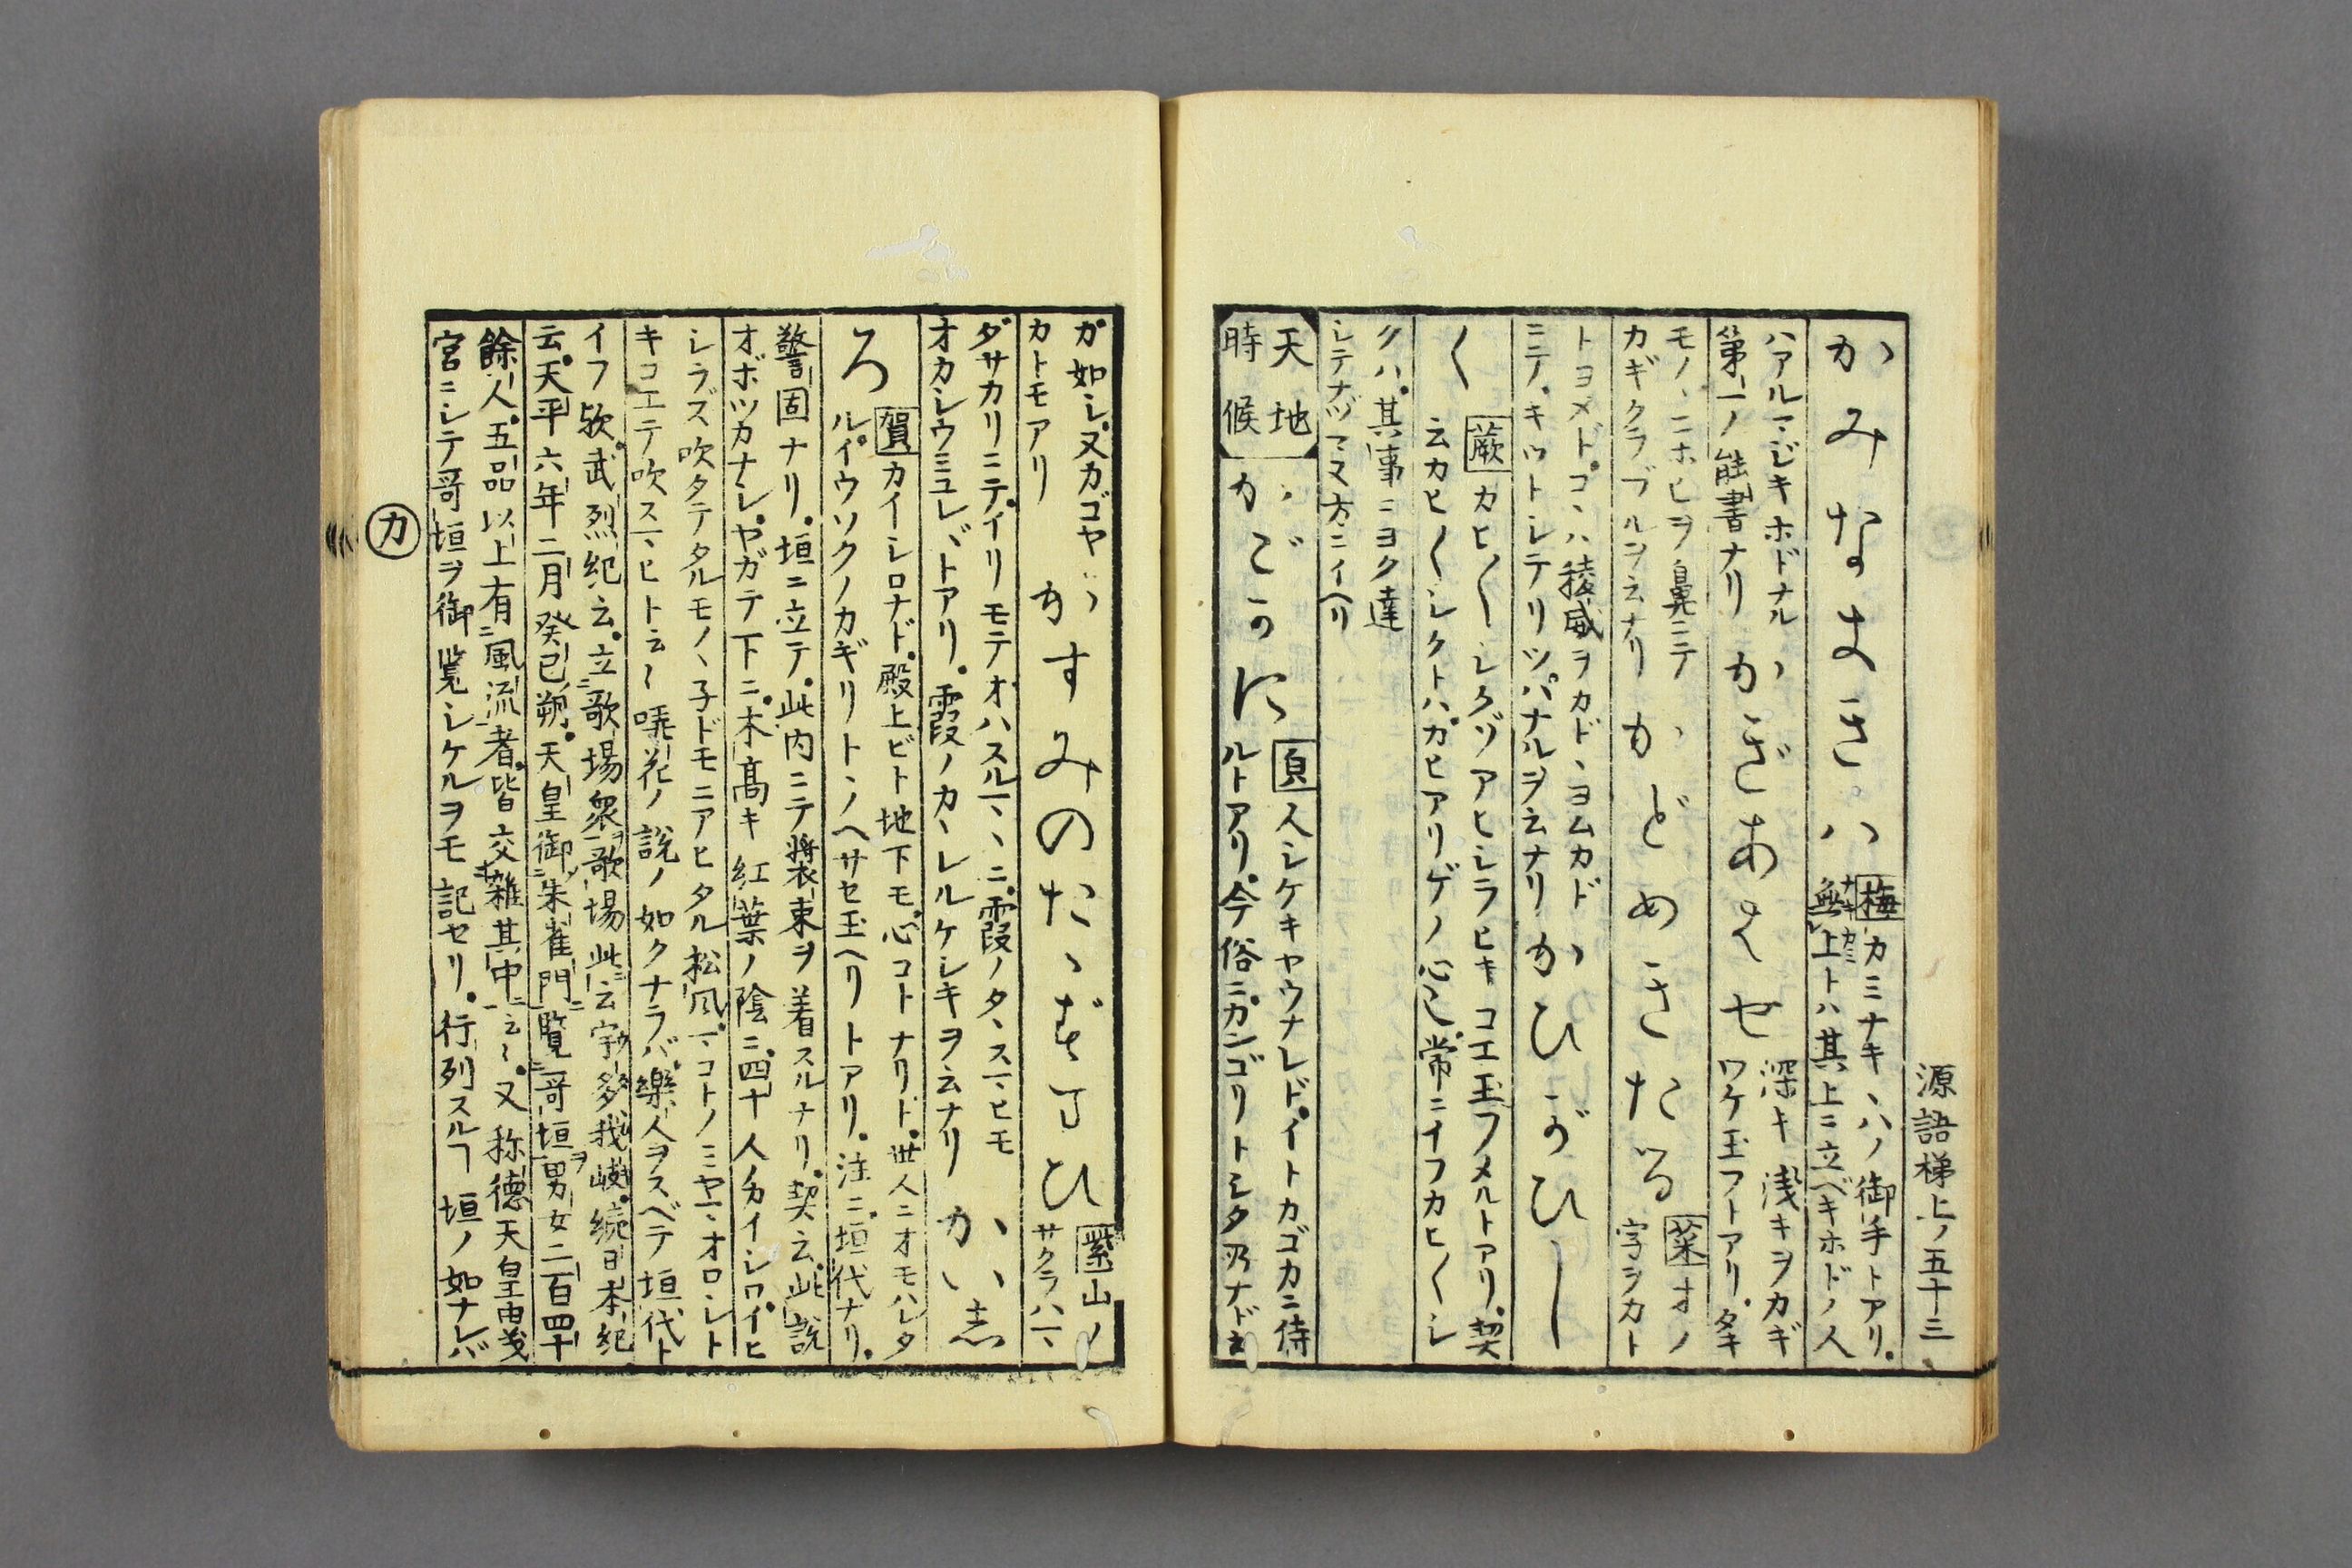 源語梯上ノ五十三
かみなきゝハ
梅カミナキヽハノ御手トアリ。
無上トハ其上ニ立ベキホドノ人
ハアルマジキホドナル
第一ノ能書ナリ
かぎあはせ
深キ浅キヲカギ
ワケ玉フトアリ。タキ
モノヽニホヒヲ鼻ニテ
カギクラブルヲ云ナリ
かどめきたる
葉オノ
字ヲカト
トヨメド。コヽハ稜威ヲカドヽヨムカド
ニテ。キットシテリツパナルヲ云ナリ
かひ〲し
く
蕨カヒ〱シクゾアヒシラヒキコエ玉フメルトアリ。契
云カヒ〱シクトハ。カヒアリゲノ心也。常ニイフカヒ〱シ
クハ。其事ニヨク達
シテナヅマヌ方ニイヘリ
天地
時候
かごかに
人シケキヤウナレド。イトカゴカニ侍
ルトアリ。今俗ニカンゴリトシタ所ナド云
ガ如シ。又カゴヤ
カトモアリ
かすみのたゝずまひ
紫山ノ
サクラハヽ
ダサカリニテ。イリモテオハスルマヽニ。霞ノタヽスマヒモ
オカシウミユレバトアリ。霞ノカヽレルケシキヲ云ナリ
かいし
ろ
賀カイシロナド。殿上ビト地下モ。心コトナリド。世人ニオモハレタ
ルイウソクノカギリトヽノヘサセ玉ヘリトアリ。注ニ垣代ナリ。
警固ナリ。垣ニ立テ。此内ニテ装束ヲ着スルナリ。契云。此説
オボツカナシ。ヤガテ下ニ。木高キ紅葉ノ陰ニ。四十人ノカイシロ。イヒ
シラズ吹タテタルモノヽ子ドモニアヒタル松風。マコトノミヤマオロシト
キコエテ吹スマヒト云〻暁花ノ説ノ如クナラバ。樂人ヲスベテ垣代ト
イフ歟。武烈紀云。立歌場衆歌場此云宇多我岐。続日本紀
云。天平六年二月癸巳朔。天皇御朱雀門覧哥垣男女二百四十
餘人。五品以上有風流者。皆交雑其中云〻。又称徳天皇由義
宮ニシテ哥垣ヲ御覧シケルヲモ記セリ。行列スルヿ垣ノ如ナレバ
カ